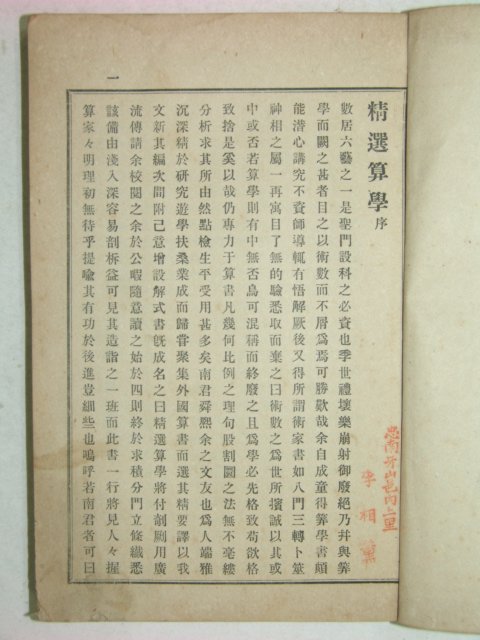 精選算學序
數居六藝之一是聖門設科之必資也季世禮壞樂崩射御廢絕乃幷與筭
學而闕之甚者目之以術數而不屑爲焉可勝歎哉余自成童得筭學書頗
能潛心講究不資師導輒有悟解厥後又得所謂術家書如八門三轉卜筮
神相之屬一再寓目了無的驗悉取而棄之曰術數之爲世所擯誠以其或
中或否若算學則有中無否烏可混稱而終廢之且爲學必先格致苟欲格
致捨是奚以哉仍專力于算書凡幾何比例之理句股割圜之法無不毫縷
分析求其所由然點檢生平受用甚多矣南君舜熙余之文友也爲人端雅
沉深精於硏究遊學扶桑業成而歸甞聚集外國算書而選其精要譯以我
文新其編次間附己意增設解式書旣成名之曰精選算學將付剞劂用廣
流傳請余校閱之余於公暇隨意讀之始於四則終於求積分門立條纖悉
該備由淺入深容易剖柝益可見其造詣之一班而此書一行將見人々握
算家々明理初無待乎提喩其有功於後進豈細些也嗚呼若南君者可曰
一
忠南牙山邑內上里
李相薰